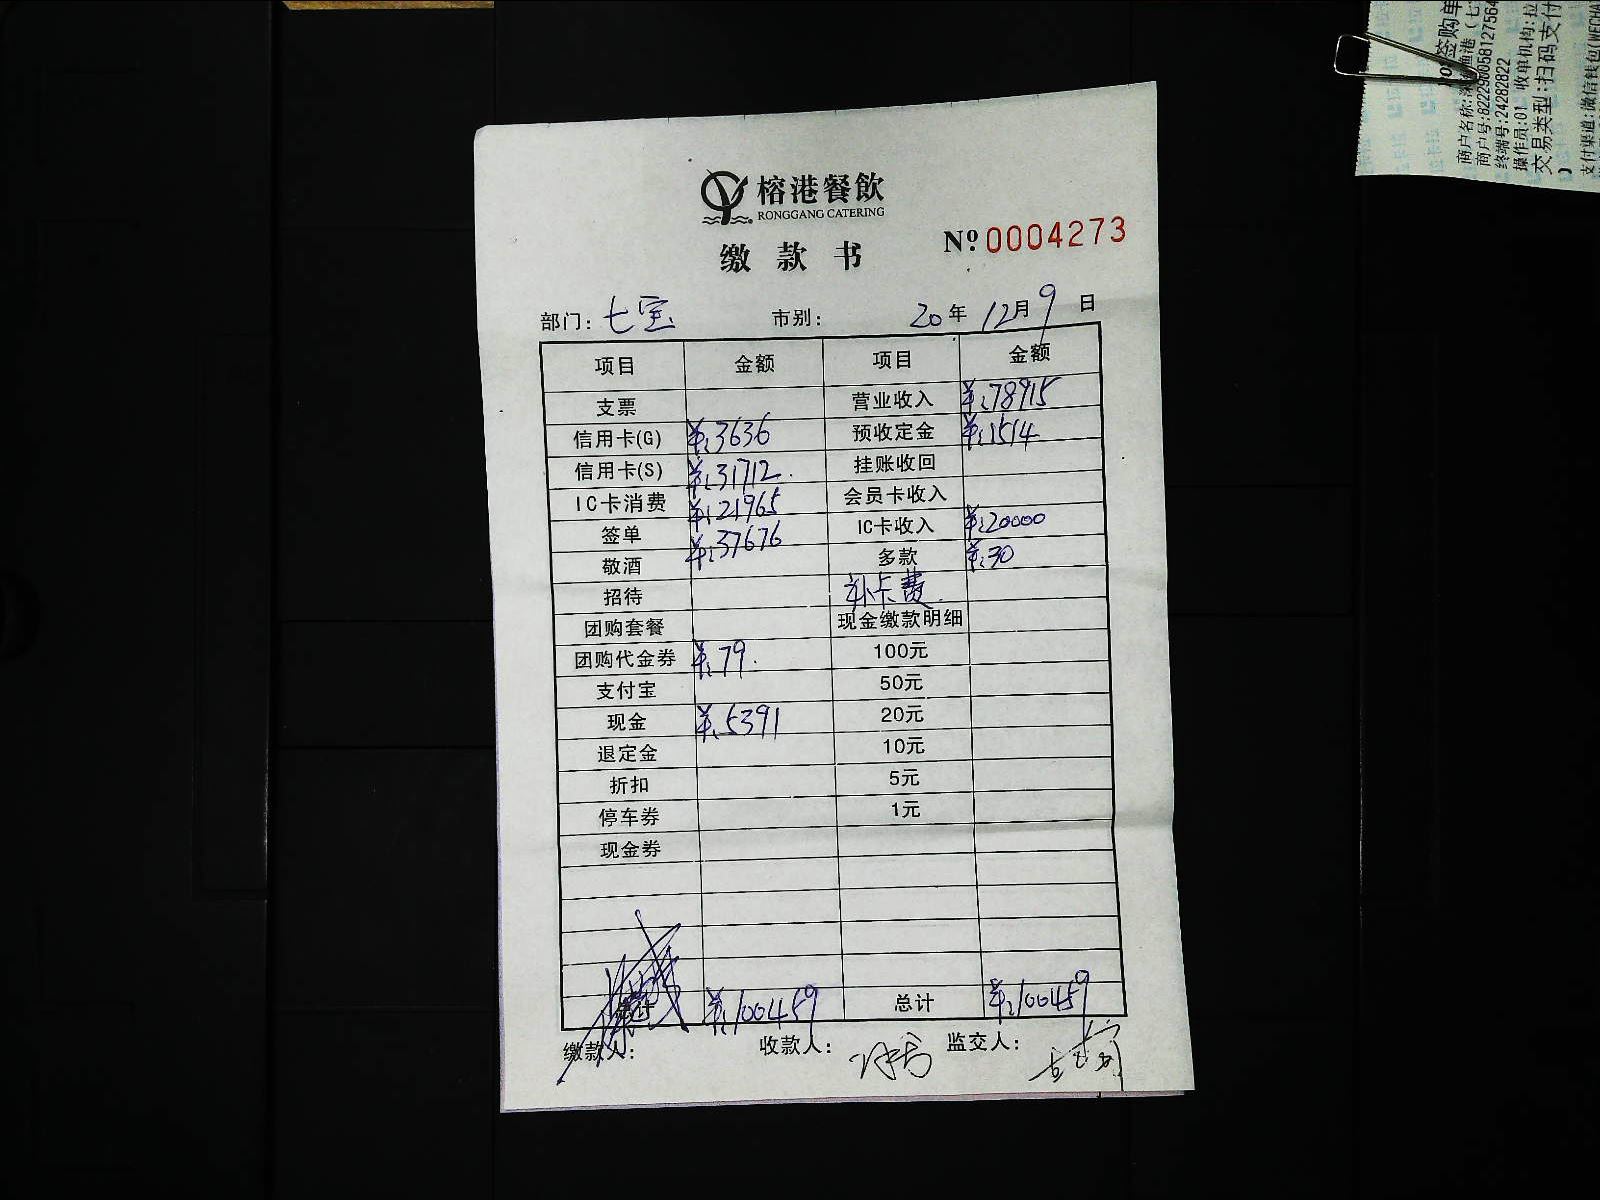 榕港餐飲
RONGGANG CATERING
缴款书
Nº 0004273
部门: 七宝 市别: 20年 12月 9日
项目 金额 项目 金额
支票 营业收入 ¥:78915
信用卡(G) ¥:3636 预收定金 ¥:1514
信用卡(S) ¥:31712. 挂账收回
IC卡消费 ¥:21965 会员卡收入
签单 ¥:37676 IC卡收入 ¥:20000
敬酒 多款 ¥:30
招待 补卡费.
团购套餐 现金缴款明细
团购代金券 ¥:79. 100元
支付宝 50元
现金 ¥:5391 20元
退定金 10元
折扣 5元
停车券 1元
现金券
总计 ¥:100459 总计 ¥:100459
缴款人: 收款人: 监交人:
签购单
商户名称: 渔港(七
终端号:24282822
操作员:01 收单机构:拉
交易类型:扫码支付
)
支付渠道:微信钱包(WECHA